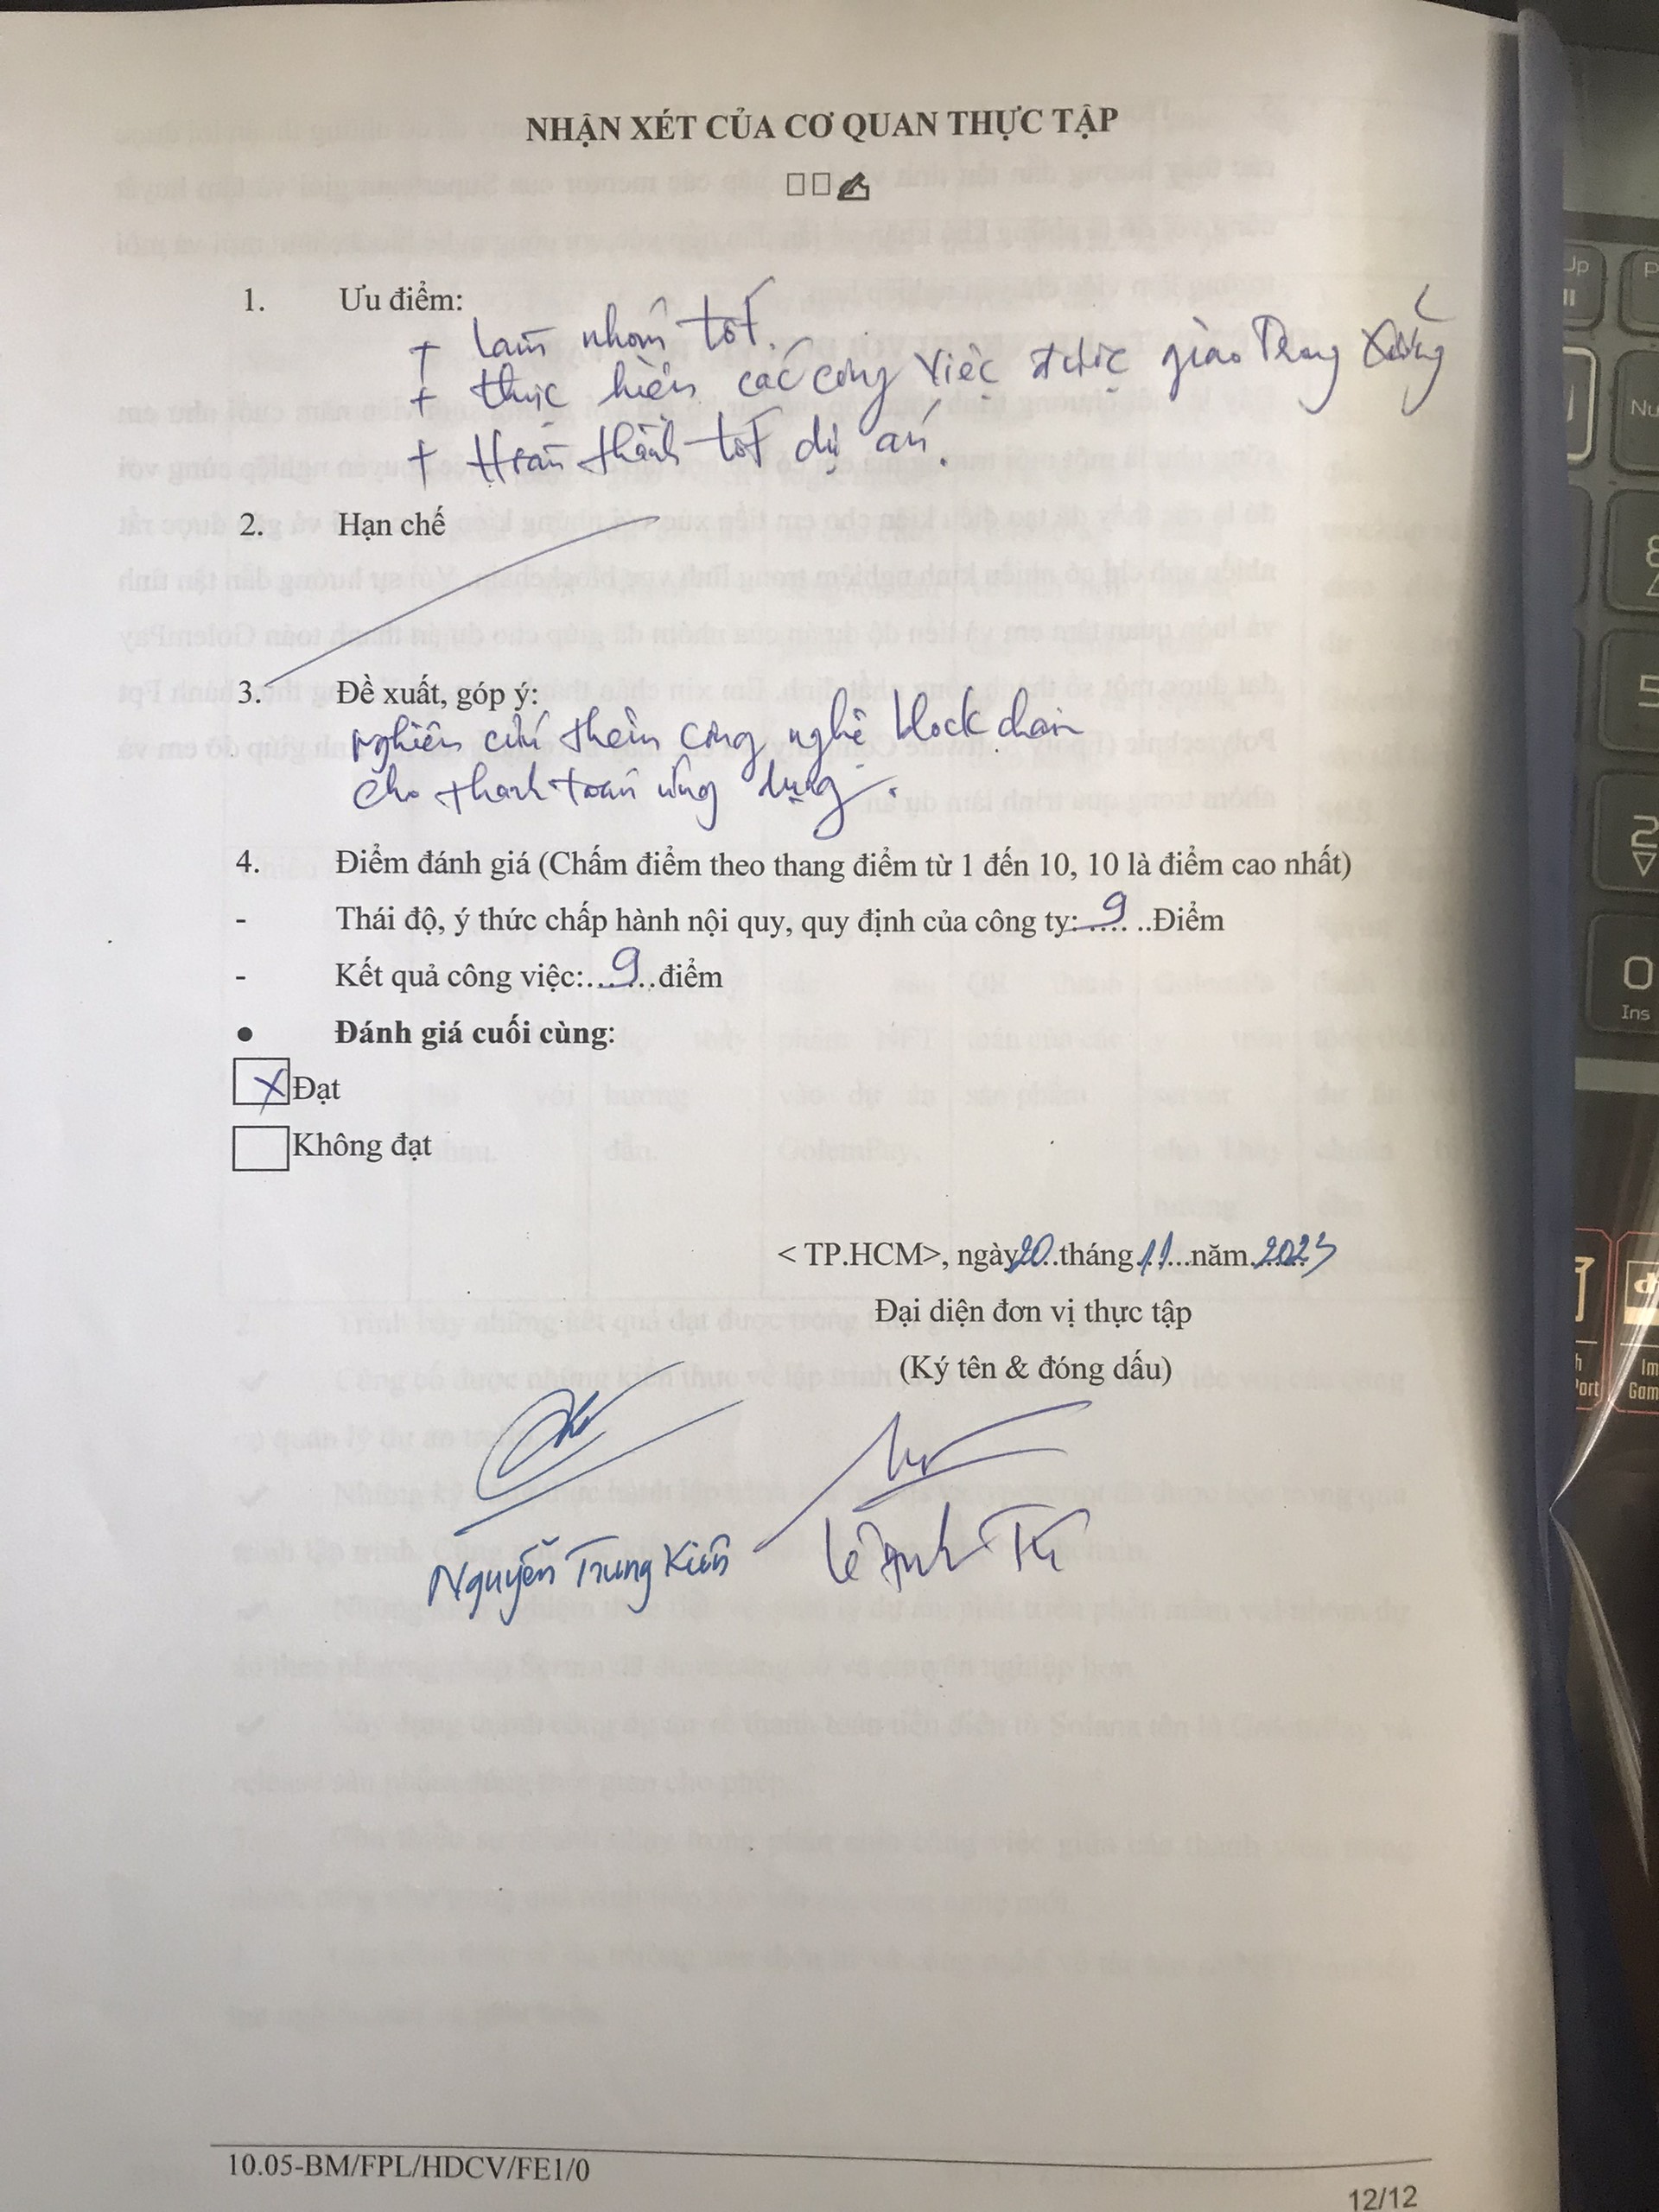 NHẬN XÉT CỦA CƠ QUAN THỰC TẬP
1. Ưu điểm:
+ làm nhóm tốt.
+ thực hiện các công việc được giao trong xưởng
+ Hoàn thành tốt dự án.
2. Hạn chế
3. Đề xuất, góp ý:
nghiên cứu thêm công nghệ blockchain
cho thanh toán ứng dụng.
4. Điểm đánh giá (Chấm điểm theo thang điểm từ 1 đến 10, 10 là điểm cao nhất)
- Thái độ, ý thức chấp hành nội quy, quy định của công ty:..9.. ..Điểm
- Kết quả công việc:...9...điểm
● Đánh giá cuối cùng:
X Đạt
Không đạt
< TP.HCM>, ngày20..tháng11...năm.2023
Đại diện đơn vị thực tập
(Ký tên & đóng dấu)
Nguyễn Trung Kiên Lê Anh Tú
10.05-BM/FPL/HDCV/FE1/0
12/12
Nu
5
2
0
Ins